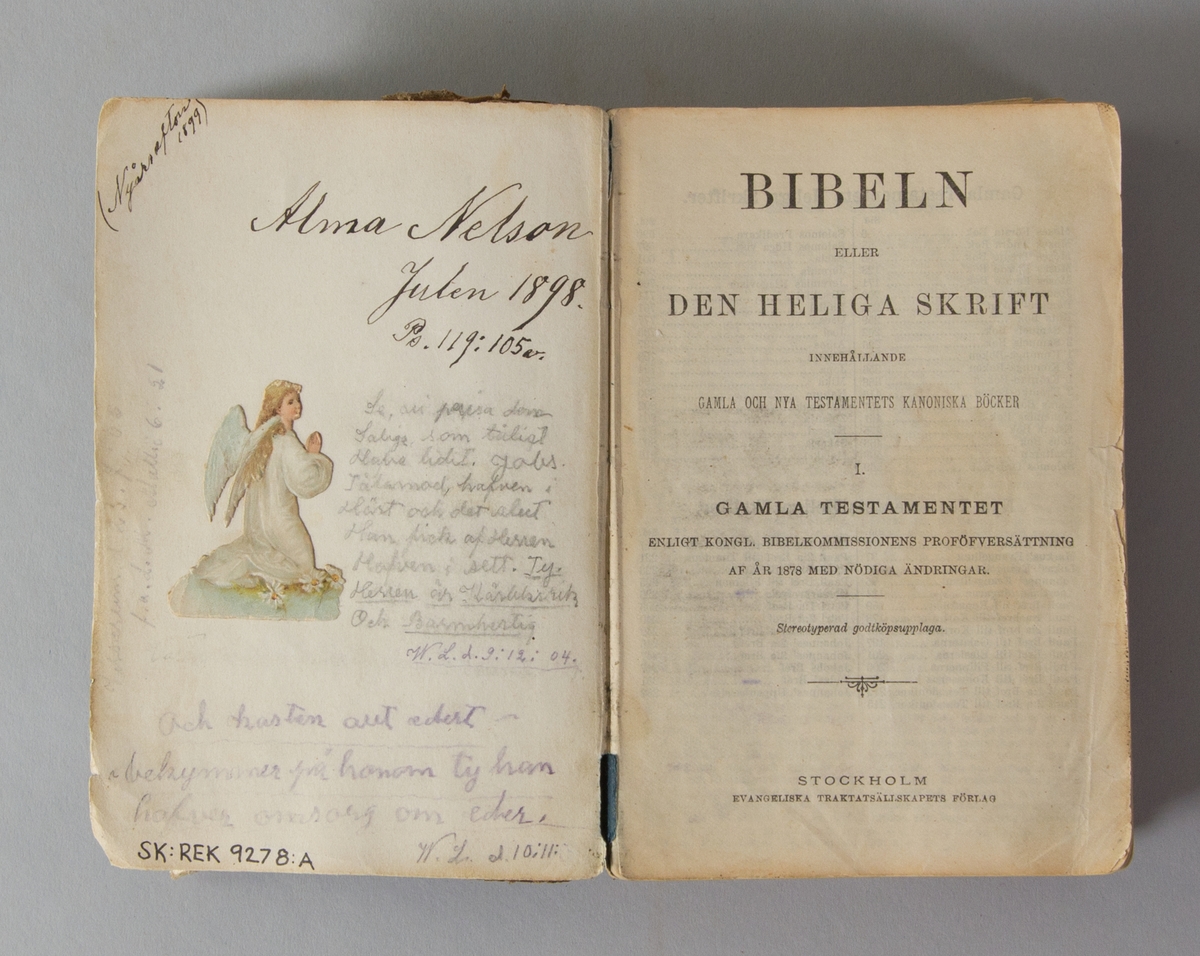 (Nyårsafton
1899)
Alma Nelson
Julen 1898.
Ps. 119:105 v.
Se, vi prisa dem
Salige som tåligt
Hava lidit. Jobs.
Tålamod, hafven i
Hört och det slut
Han fick af Herren
Hafven i sett. Ty.
Herren är
Och Barmhertig
W. L. d. 9:12: 04.
Och kasten allt edert
bekymmer på honom ty han
hafver omsorg om eder.
W. L. d. 10:11:
SK:REK 9278:A
BIBELN
ELLER
DEN HELIGA SKRIFT
INNEHÅLLANDE
GAMLA OCH NYA TESTAMENTETS KANONISKA BÖCKER
I.
GAMLA TESTAMENTET
ENLIGT KONGL. BIBELKOMMISSIONENS PROFÖFVERSÄTTNING
AF ÅR 1878 MED NÖDIGA ÄNDRINGAR.
Stereotyperad godtköpsupplaga.
STOCKHOLM
EVANGELISKA TRAKTATSÄLLSKAPETS FÖRLAG